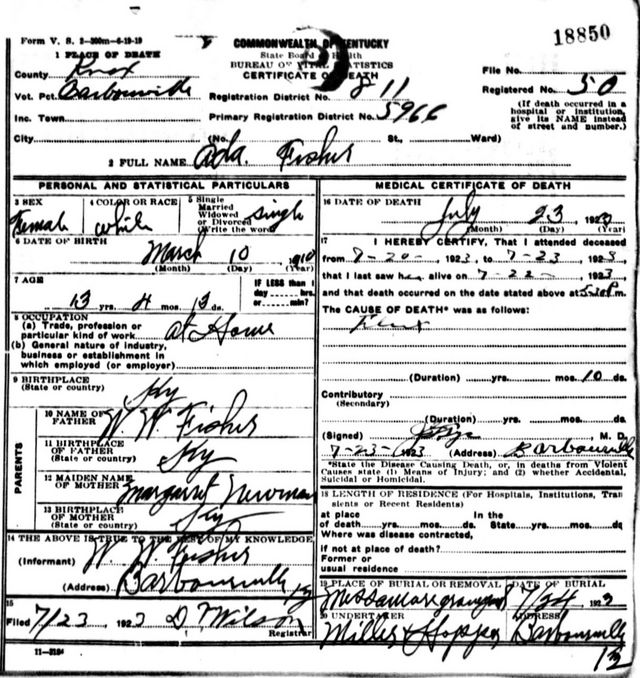 18850
Form V. S. 2-300m-6-19-19
COMMONWEALTH OF KENTUCKY
State Board of Health
BUREAU OF VITAL STATISTICS
CERTIFICATE OF DEATH
1 PLACE OF DEATH
County Knox
File No.
Vot. Pct. Barbourville
Registration District No. 811
Registered No. 50
Inc. Town
Primary Registration District No. 5966
(If death occurred in a hospital or institution, give its NAME instead of street and number.)
City (No. St., Ward)
2 FULL NAME Ada. Fisher
PERSONAL AND STATISTICAL PARTICULARS
3 SEX Female
4 COLOR OR RACE white
5 Single Married Widowed or Divorced (Write the word) single
6 DATE OF BIRTH March 10 1910
(Month) (Day) (Year)
7 AGE
13 yrs. 4 mos. 13 ds.
IF LESS than 1 day hrs. or min?
8 OCCUPATION
(a) Trade, profession or particular kind of work At Home
(b) General nature of industry, business or establishment in which employed (or employer)
9 BIRTHPLACE
(State or country) Ky
PARENTS
10 NAME OF FATHER W W Fisher
11 BIRTHPLACE OF FATHER
(State or country) Ky
12 MAIDEN NAME OF MOTHER Margaret Newman
13 BIRTHPLACE OF MOTHER
(State or country) Ky
14 THE ABOVE IS TRUE TO THE BEST OF MY KNOWLEDGE
(Informant) W W Fisher
(Address) Barbourville
15
Filed 7/23 1923 D. Wilson
Registrar
11-3184
MEDICAL CERTIFICATE OF DEATH
16 DATE OF DEATH July 23 1923
(Month) (Day) (Year)
17 I HEREBY CERTIFY, That I attended deceased
from 7-20- 1923 to 7-23- 1923
that I last saw her alive on 7-22- 1923
and that death occurred on the date stated above at 5:30 P.m.
The CAUSE OF DEATH* was as follows:
(Duration) yrs. mos. 10 ds.
Contributory
(Secondary)
(Duration) yrs. mos. ds.
(Signed) M. D.
7-23- 1923 (Address) Barbourville
*State the Disease Causing Death, or, in deaths from Violent Causes state (1) Means of Injury; and (2) whether Accidental, Suicidal or Homicidal.
18 LENGTH OF RESIDENCE (For Hospitals, Institutions, Transients or Recent Residents)
at place of death yrs. mos. ds. In the State yrs. mos. ds.
Where was disease contracted,
If not at place of death?
Former or usual residence
19 PLACE OF BURIAL OR REMOVAL
DATE OF BURIAL
7/24 1923
20 UNDERTAKER
ADDRESS
Miller & Hopper Barbourville